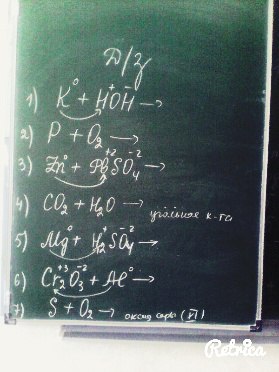 Д/З
1) K⁰ + H⁺OH⁻ →
2) P + O₂ →
3) Zn⁰ + Pb⁺²SO₄⁻² →
4) CO₂ + H₂O → угольная к-та
5) Mg⁰ + H₂⁺SO₄⁻² →
6) Cr₂⁺³O₃⁻² + Al⁰ →
7) S + O₂ → оксид серы (VI)
Retrica